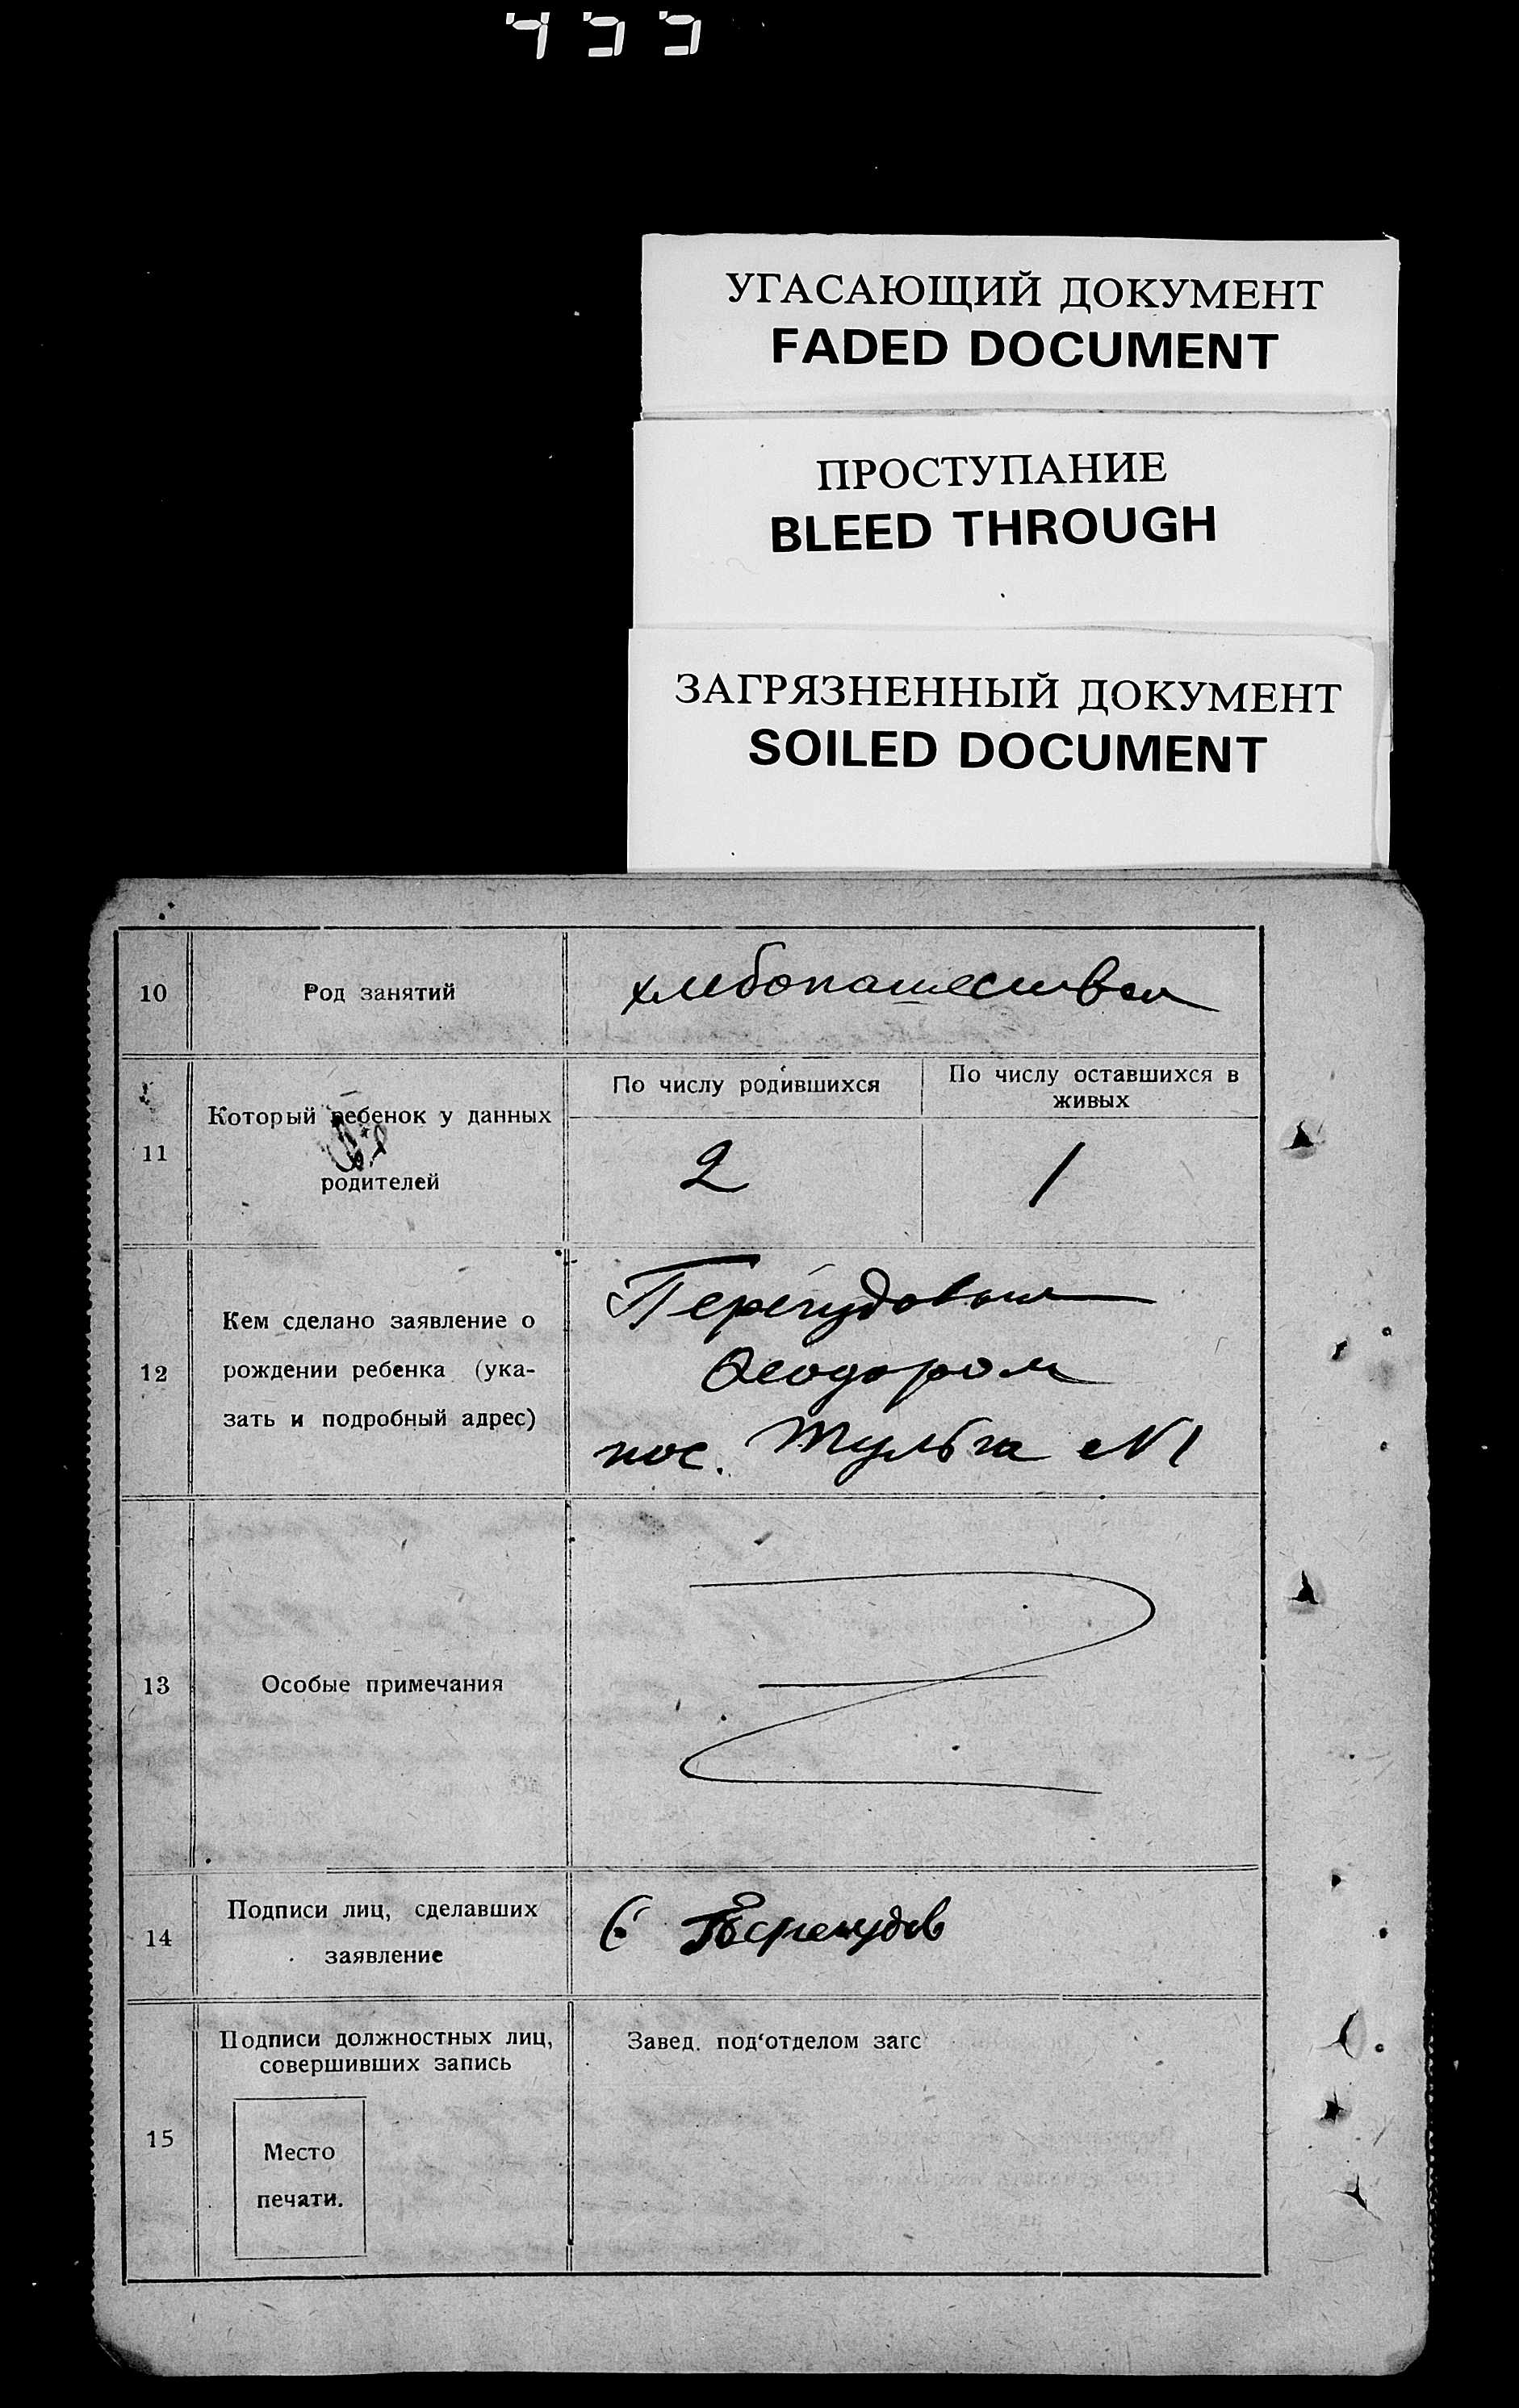 УГАСАЮЩИЙ ДОКУМЕНТ
FADED DOCUMENT
ПРОСТУПАНИЕ
BLEED THROUGH
ЗАГРЯЗНЕННЫЙ ДОКУМЕНТ
SOILED DOCUMENT
10 Род занятий хлебопашество
По числу родившихся По числу оставшихся в
живых
Который ребенок у данных
11 2 1
родителей
Перепудовым
Кем сделано заявление о
12 рождении ребенка (ука- Феодором
зать и подробный адрес)
пос. N1
13 Особые примечания
Подписи лиц, сделавших
14 Перепудов
заявление
Подписи должностных лиц, Завед. под‘отделом загс
совершивших запись
15 Место
печати.